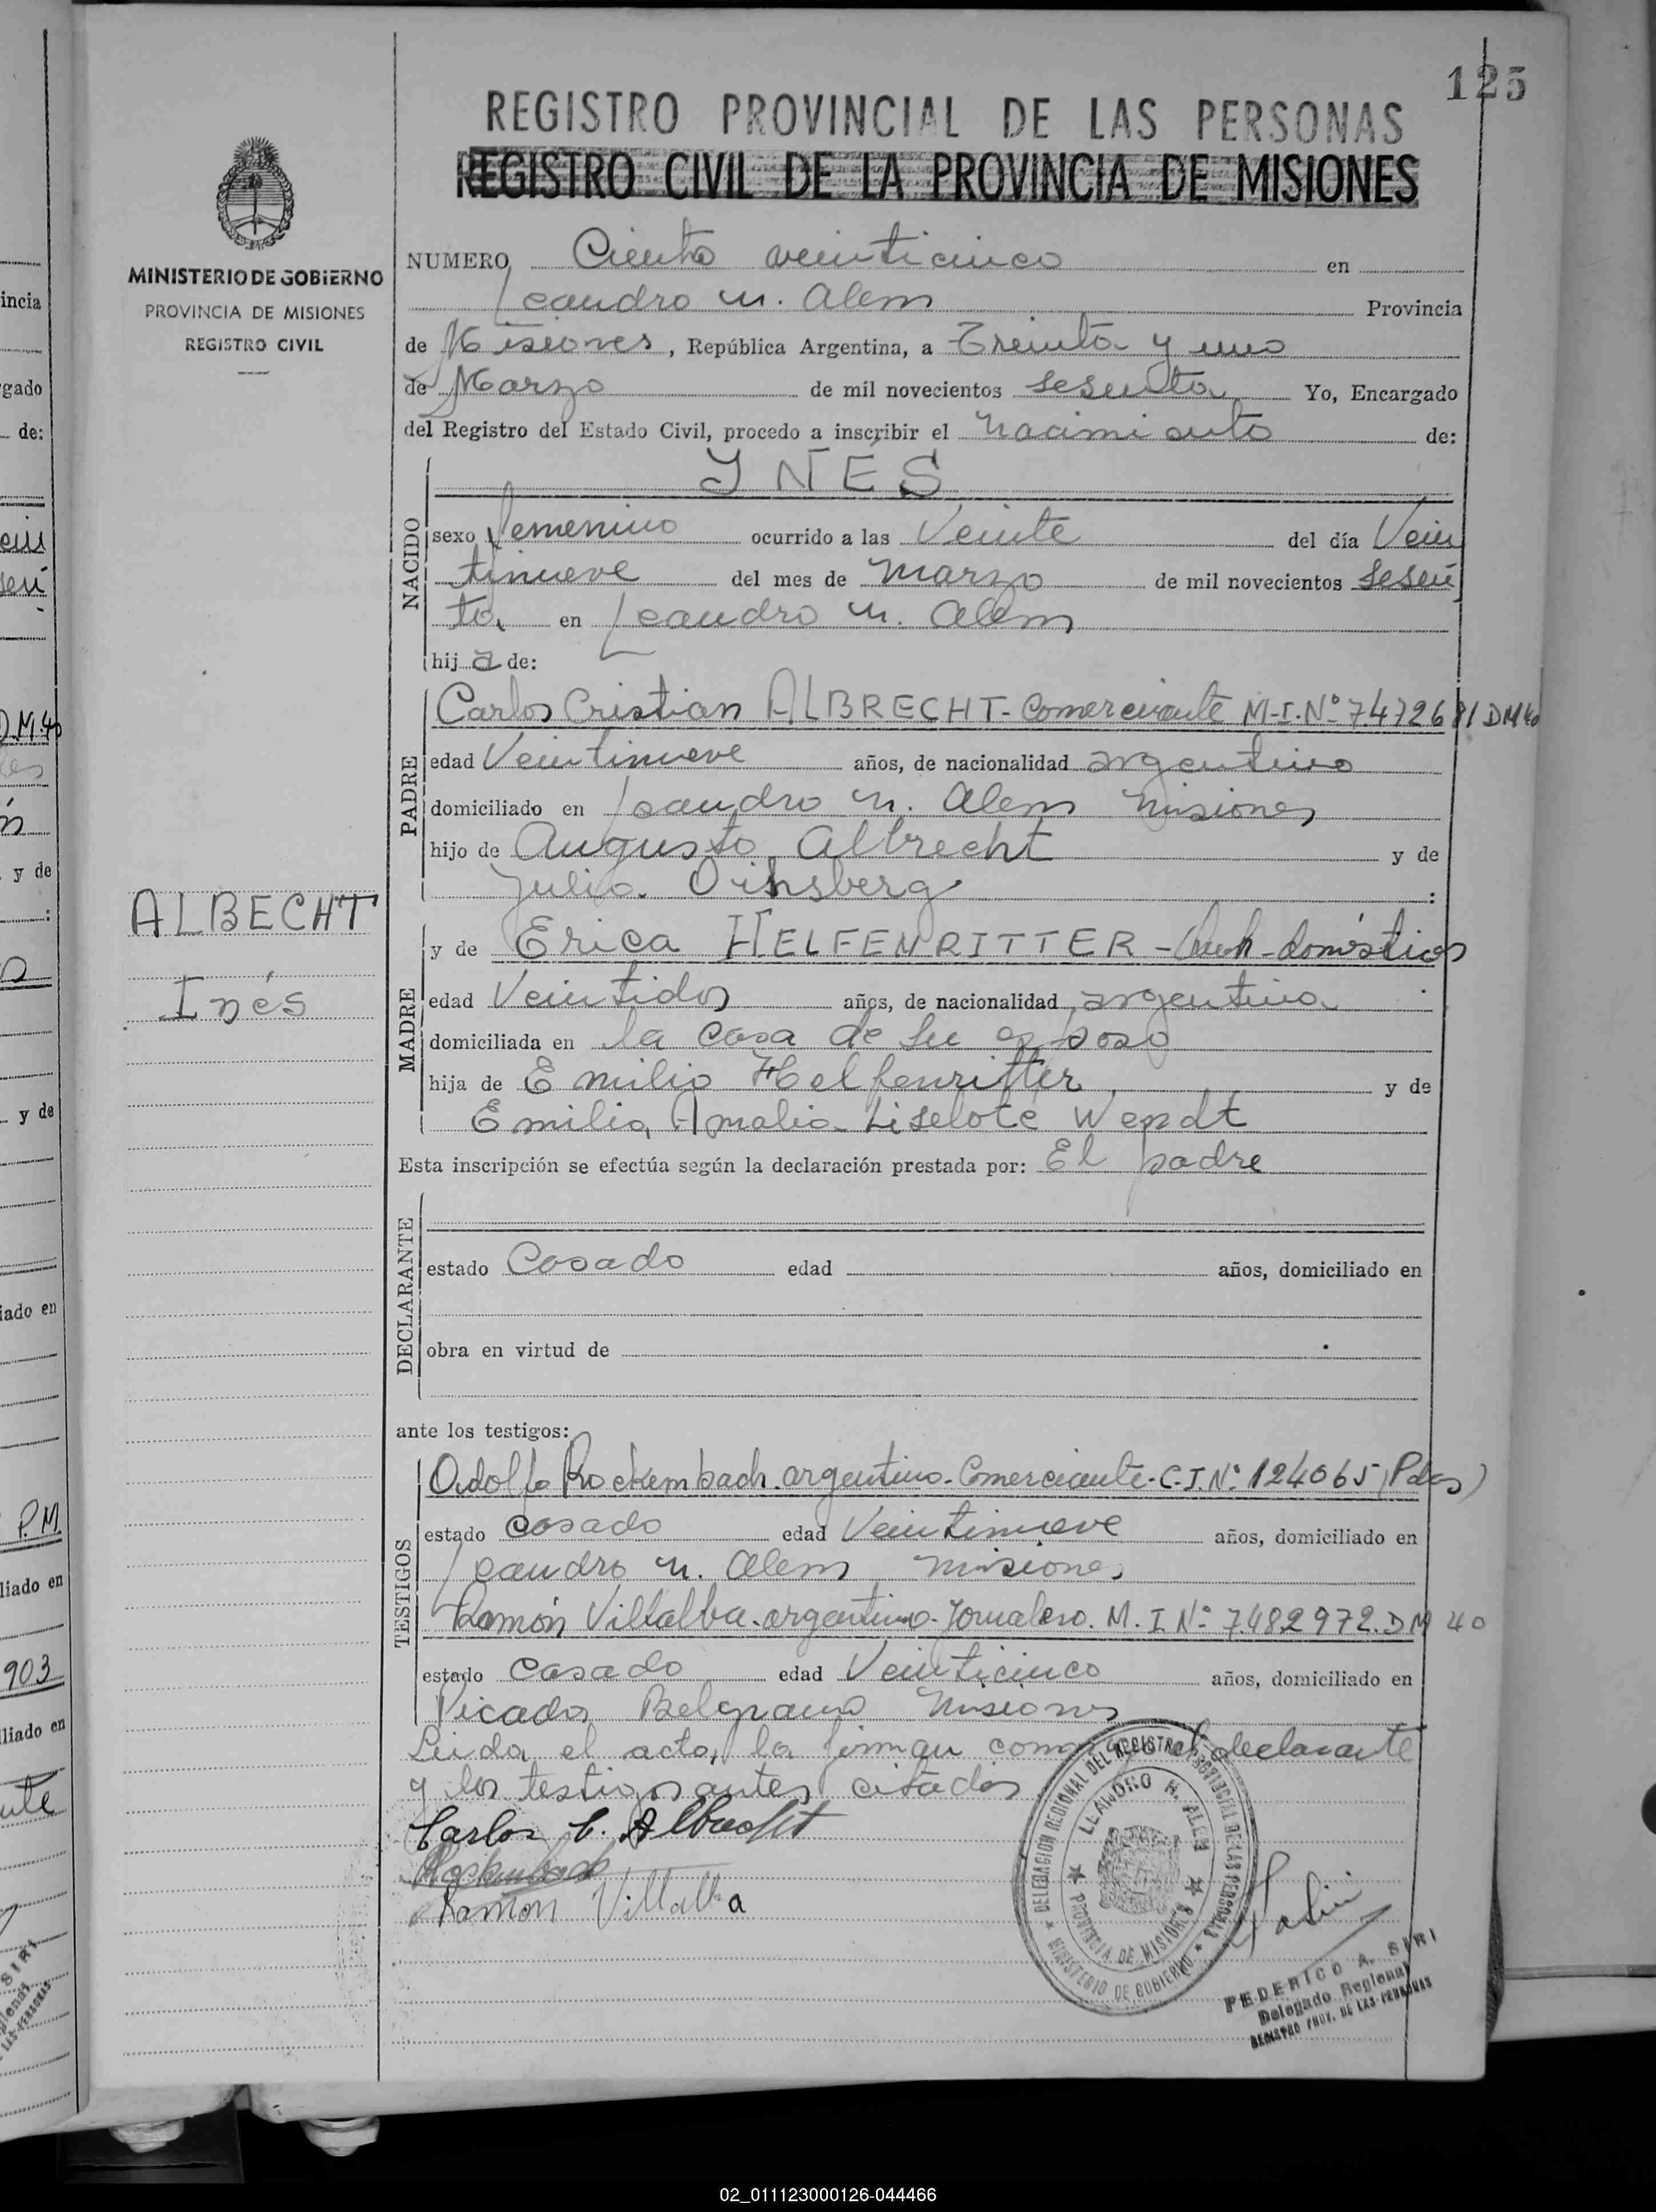 125
REGISTRO PROVINCIAL DE LAS PERSONAS
REGISTRO CIVIL DE LA PROVINCIA DE MISIONES
MINISTERIO DE GOBIERNO
PROVINCIA DE MISIONES
REGISTRO CIVIL
NUMERO Ciento veinticinco en
Leandro N. Alem Provincia
de Misiones, República Argentina, a Treinta y uno
de Marzo de mil novecientos sesenta Yo, Encargado
del Registro del Estado Civil, procedo a inscribir el Nacimiento de:
YNÉS
NACIDO
sexo femenino ocurrido a las Veinte del día Vein
tinueve del mes de Marzo de mil novecientos Sesen
ta en Leandro N. Alem
hija de:
PADRE
Carlos Cristian ALBRECHT - Comerciante M-I. Nº 7.472681 DM40
edad Veintinueve años, de nacionalidad argentino
domiciliado en Leandro N. Alem Misiones
hijo de Augusto Albrecht y de
Julia :
ALBECHT
Inés
MADRE
y de Erica HELFENRITTER - domésticos
edad Veintidos años, de nacionalidad argentina
domiciliada en la casa de su esposo
hija de Emilio Helfenritter y de
Emilia Amalia Liselote Wendt
Esta inscripción se efectúa según la declaración prestada por: El padre
DECLARANTE
estado Casado edad años, domiciliado en
obra en virtud de
ante los testigos:
TESTIGOS
Adolfo Rockembach. argentino. Comerciante. C.I. Nº 124065 (Pdas)
estado Casado edad Veintinueve años, domiciliado en
Leandro N. Alem Misiones
Ramón Villalba. argentino. Jornalero. M. I. Nº 7.482972. DM 40
estado Casado edad Veinticinco años, domiciliado en
Picada Belgrano Misiones
Leida el acta, la firman conmigo el declarante
y los testigos antes citados
Carlos C. Albrecht
Rockembach
Ramón Villalba
DELEGACION REGIONAL DEL REGISTRO PROVINCIAL DE LAS PERSONAS
MINISTERIO DE GOBIERNO
LEANDRO N. ALEM
PROVINCIA DE MISIONES
FEDERICO A. SIRI
Delegado Regional
REGISTRO PROV. DE LAS PERSONAS
incia
gado
de:
D.M.40
y de
y de
P.M
iado en
liado en
903
liado en
02_011123000126-044466